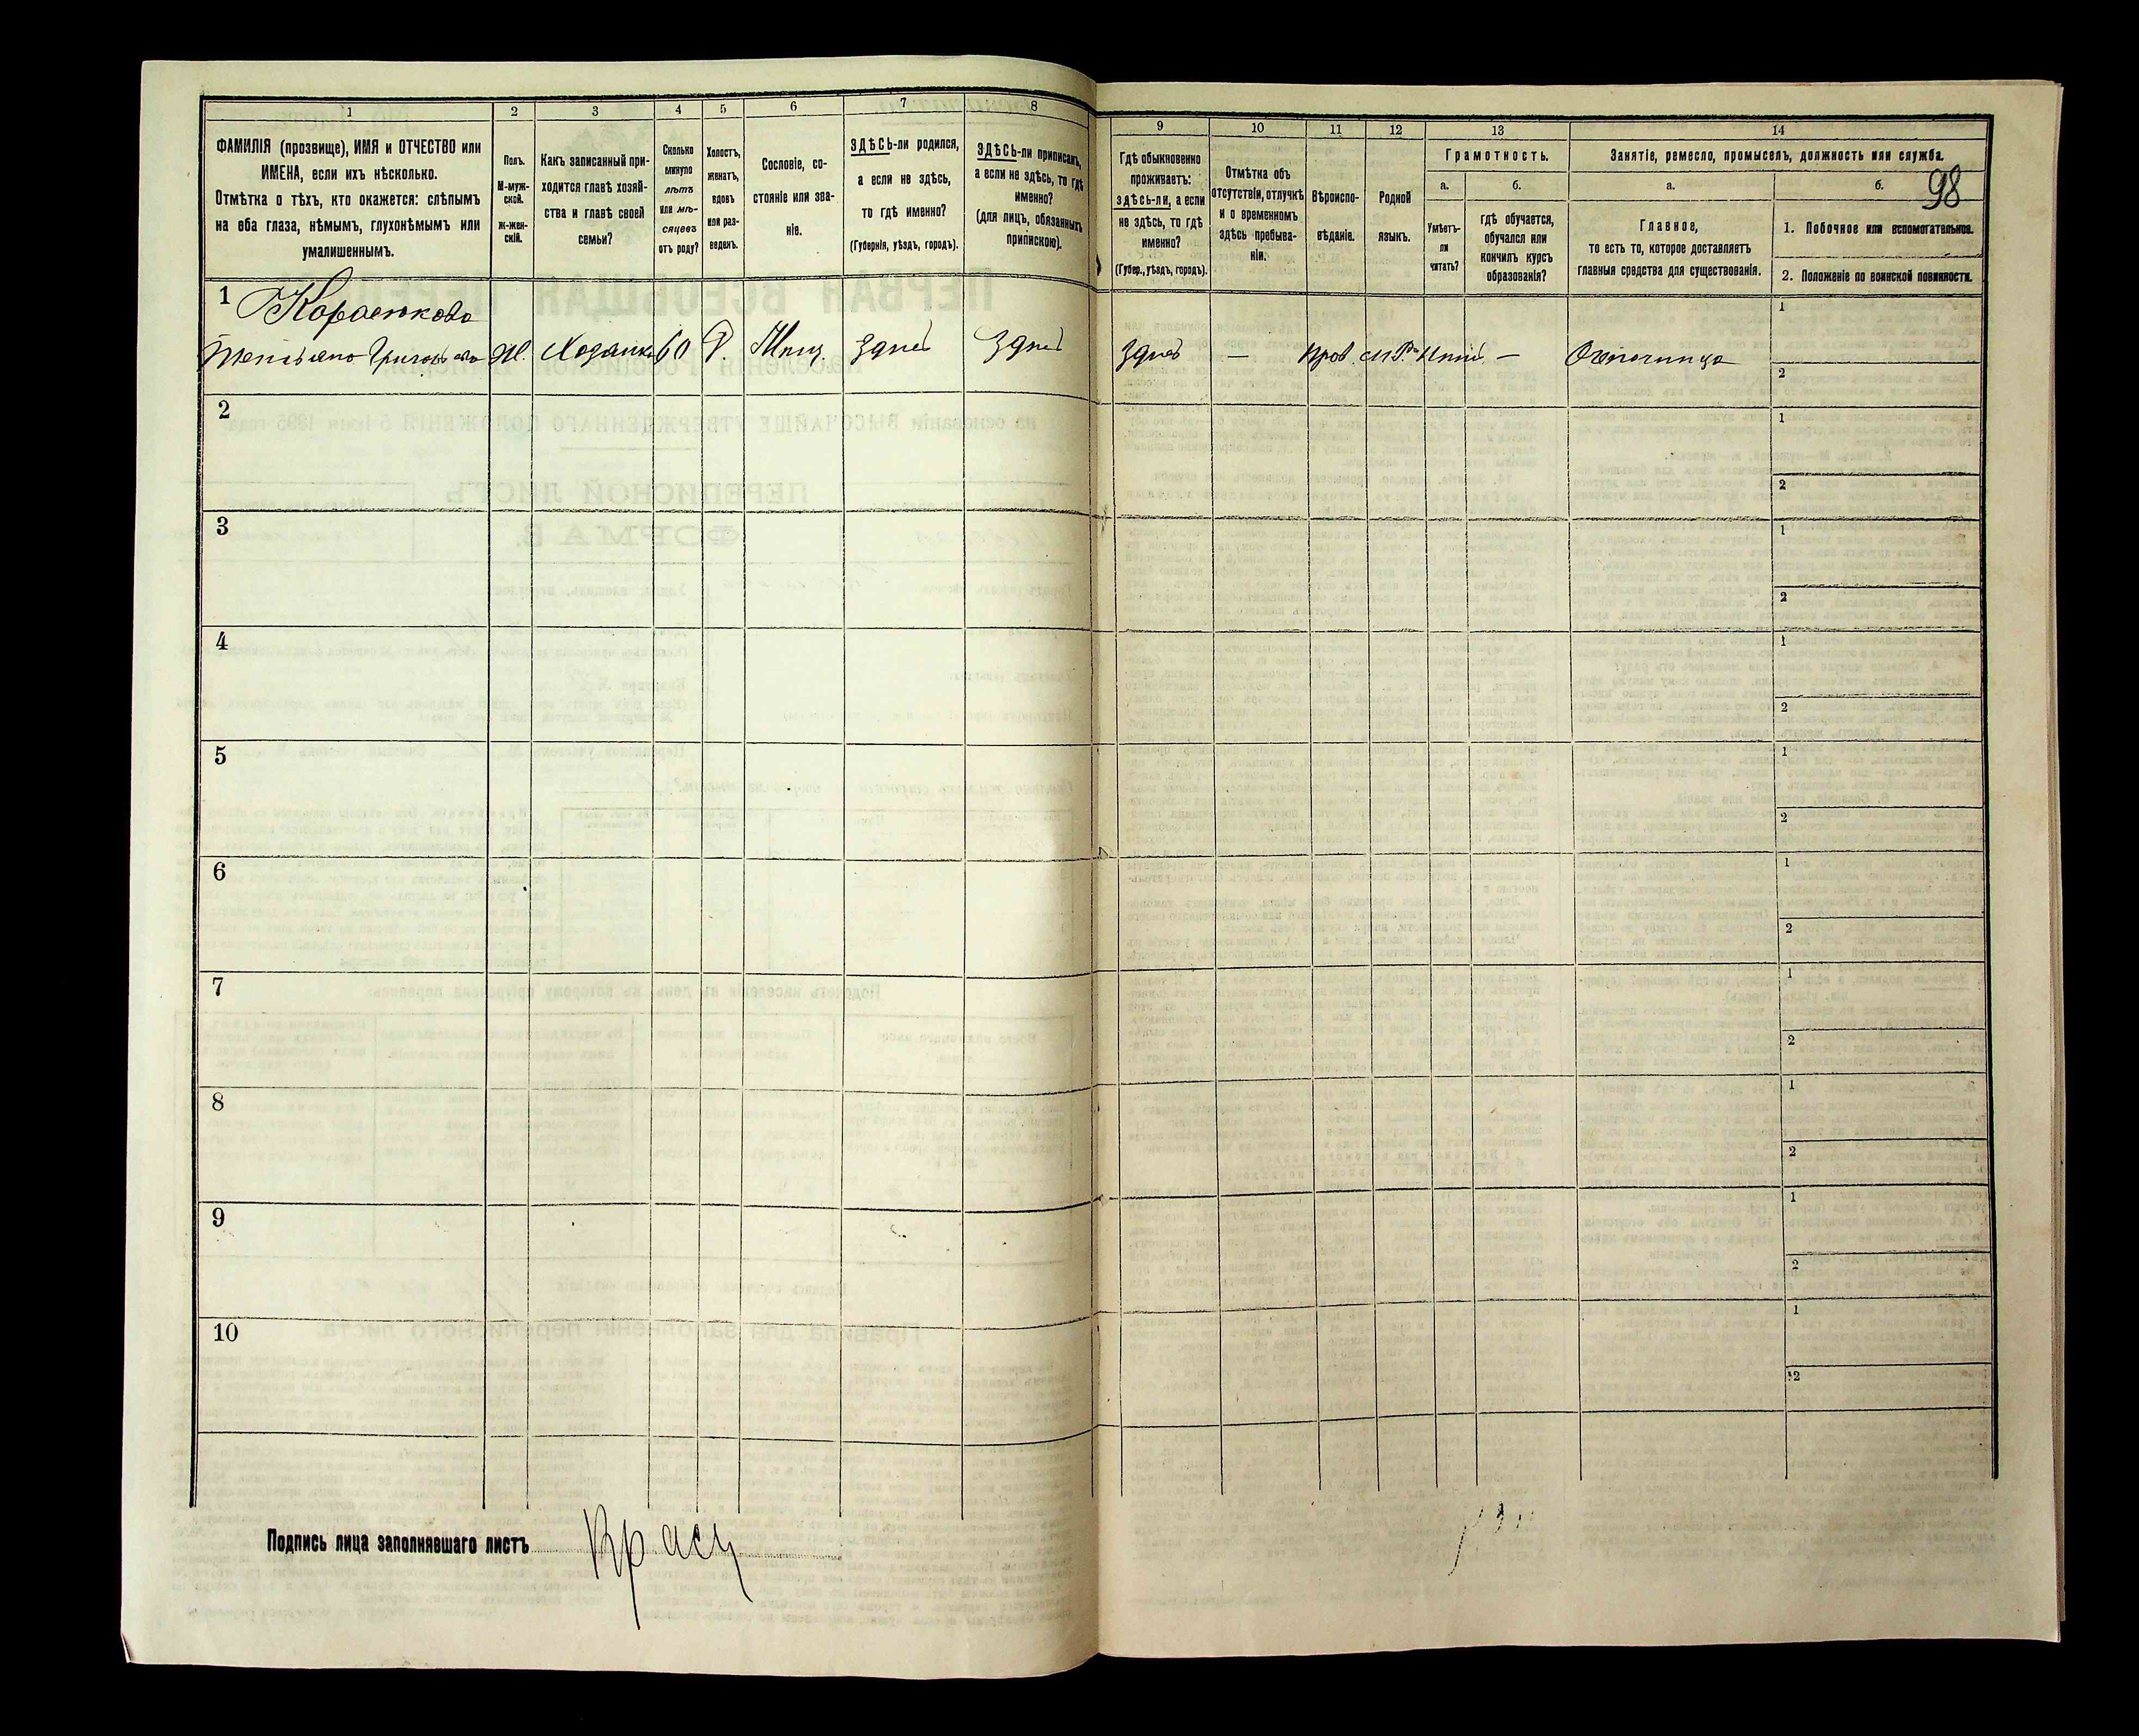 1
2
3
4
5
6
7
8
ФАМИЛІЯ (прозвище), ИМЯ и ОТЧЕСТВО или
ИМЕНА, если ихъ нѣсколько.
Отмѣтка о тѣхъ, кто окажется: слѣпымъ
на оба глаза, нѣмымъ, глухонѣмымъ или
умалишеннымъ.
Полъ.
М-муж-
ской.
Ж-жен-
скій.
Какъ записанный при-
ходится главѣ хозяй-
ства и главѣ своей
семьи?
Сколько
минуло
лѣтъ
или мѣ-
сяцевъ
отъ роду?
Холостъ,
женатъ,
вдовъ
или раз-
веденъ.
Сословіе, со-
стояніе или зва-
ніе.
ЗДѢСЬ-ли родился,
а если не здѣсь,
то гдѣ именно?
(Губернія, уѣздъ, городъ).
ЗДѢСЬ-ли приписанъ,
а если не здѣсь, то гдѣ
именно?
(для лицъ, обязанныхъ
припискою).
9
10
11
12
13
14
Гдѣ обыкновенно
проживаетъ:
здѣсь-ли, а если
не здѣсь, то гдѣ
именно?
(Губер., уѣздъ, городъ).
Отмѣтка объ
отсутствіи, отлучкѣ
и о временномъ
здѣсь пребыва-
ніи.
Вѣроиспо-
вѣданіе.
Родной
языкъ.
Грамотность.
а.
б.
Умѣетъ-
ли
читать?
гдѣ обучается,
обучался или
кончилъ курсъ
образованія?
Занятіе, ремесло, промыселъ, должность или служба.
а.
б.
98
Главное,
то есть то, которое доставляетъ
главныя средства для существованія.
1. Побочное или вспомогательное.
2. Положеніе по воинской повинности.
1
Ж.
60
Мѣщ.
Здѣсь
Здѣсь
Здѣсь
—
Прав.
—
1
2
2
1
2
3
1
2
4
1
2
5
1
2
6
1
2
7
1
2
8
1
2
9
1
2
10
1
2
Подпись лица заполнявшаго листъ